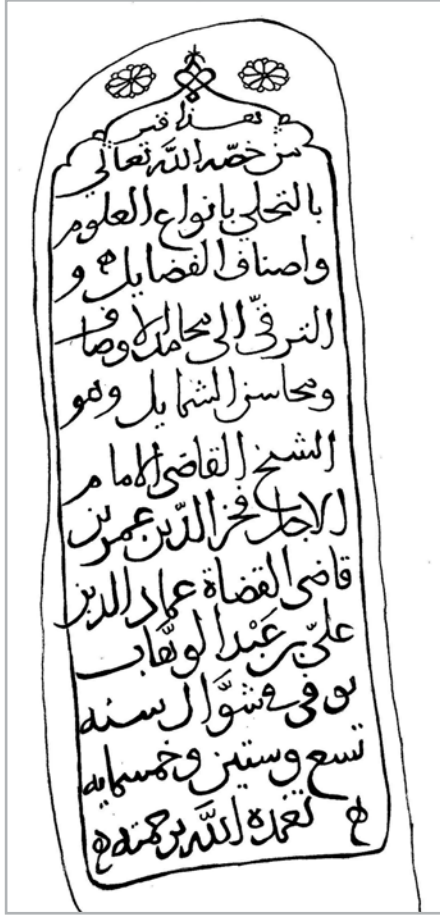 هذا قبر
من خصّه اللّه تعالى
بالتحلي بانواع العلوم
واصناف الفضايل و
الترقّي الى محامد الاوصاف
ومحاسن الشمايل وهو
الشيخ القاضي الامام
الاجل فخر الدّين عمر بن
قاضي القضاة عماد الدين
عليّ بن عَبْد الوهّاب
توفي في شوّال سنه
تسع وستين وخمسمايه
تغمده اللّه برحمته